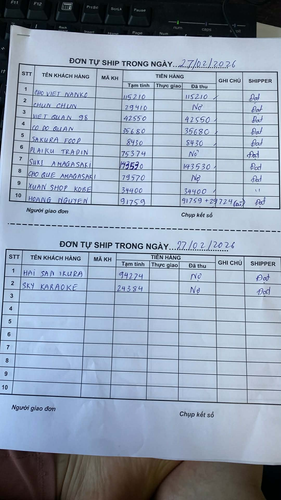 ĐƠN TỰ SHIP TRONG NGÀY...27/02/2026
STT TÊN KHÁCH HÀNG MÃ KH TIỀN HÀNG GHI CHÚ SHIPPER
Tạm tính Thực giao Đã thu
1 CHO VIET NANKO 115210 115210 Đạt
2 CHUN CHUN 29410 Nợ Đạt
3 VIET QUAN 98 42550 42550 Đạt
4 CO DO QUAN 35680 35680 Đạt
5 SAKURA FOOD 8430 8430 Đạt
6 PLAIKU TRADIN 75374 Nợ Đạt
7 SUKI AMAGASAKI 143530 Đạt
8 CHO QUE AMAGASAKI 79570 Nợ Đạt
9 XUAN SHOP KOBE 34400 34400 "
10 HOANG NGUYEN 91759 91759 + 29724 Đạt
Người giao đơn Chụp kết sổ
ĐƠN TỰ SHIP TRONG NGÀY...27/02/2026
STT TÊN KHÁCH HÀNG MÃ KH TIỀN HÀNG GHI CHÚ SHIPPER
Tạm tính Thực giao Đã thu
1 HAI SAN IKURA 94274 Nợ Đạt
2 SKY KARAOKE 24384 Nợ Đạt
3
4
5
6
7
8
9
10
Người giao đơn Chụp kết sổ